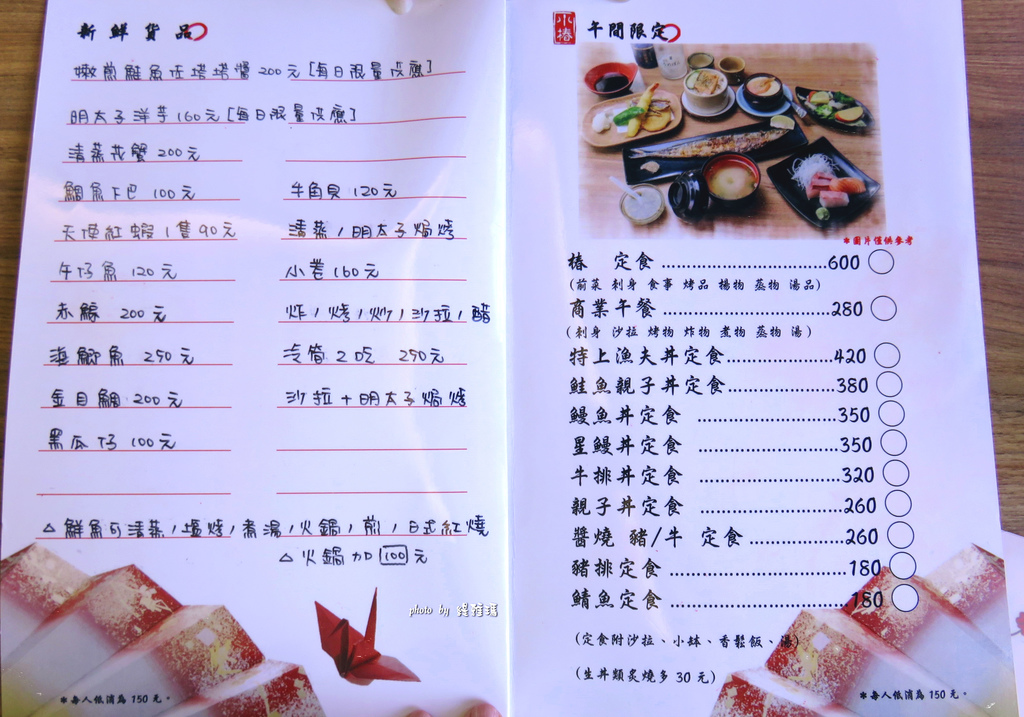 新鮮貨品
嫩煎鮭魚佐塔塔醬 200元 [每日限量供應]
明太子洋芋 160元 [每日限量供應]
清蒸花蟹 200元
鯛魚下巴 100元
天使紅蝦1隻90元
午仔魚 120元
赤鯮 200元
海鯽魚 250元
金目鯛 200元
黑瓜仔 100元
牛角貝 120元
清蒸/明太子焗烤
小卷 160元
炸/烤/炒/沙拉/醋
冷筒2吃 250元
沙拉+明太子焗烤
△鮮魚可清蒸/鹽烤/煮湯/火鍋/煎/日式紅燒
△火鍋加100元
photo by
*每人低消為 150 元。
小椿
午間限定
*圖片僅供參考
椿 定食..............................600
(前菜 刺身 食事 烤品 揚物 蒸物 湯品)
商業午餐..............................280
(刺身 沙拉 烤物 炸物 煮物 蒸物 湯)
特上漁夫丼定食...................420
鮭魚親子丼定食...................380
鰻魚丼定食 .........................350
星鰻丼定食 .........................350
牛排丼定食 .........................320
親子丼定食 .........................260
醬燒 豬/牛 定食.................260
豬排定食 ..............................180
鯖魚定食 ..............................180
(定食附沙拉、小缽、香鬆飯、湯)
(生丼類炙燒多 30 元)
*每人低消為 150 元。